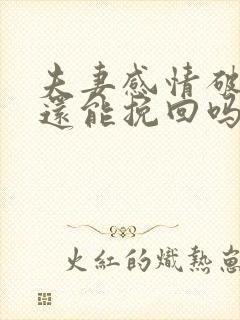 夫妻感情破
還能挽回吗
火紅的熾熱